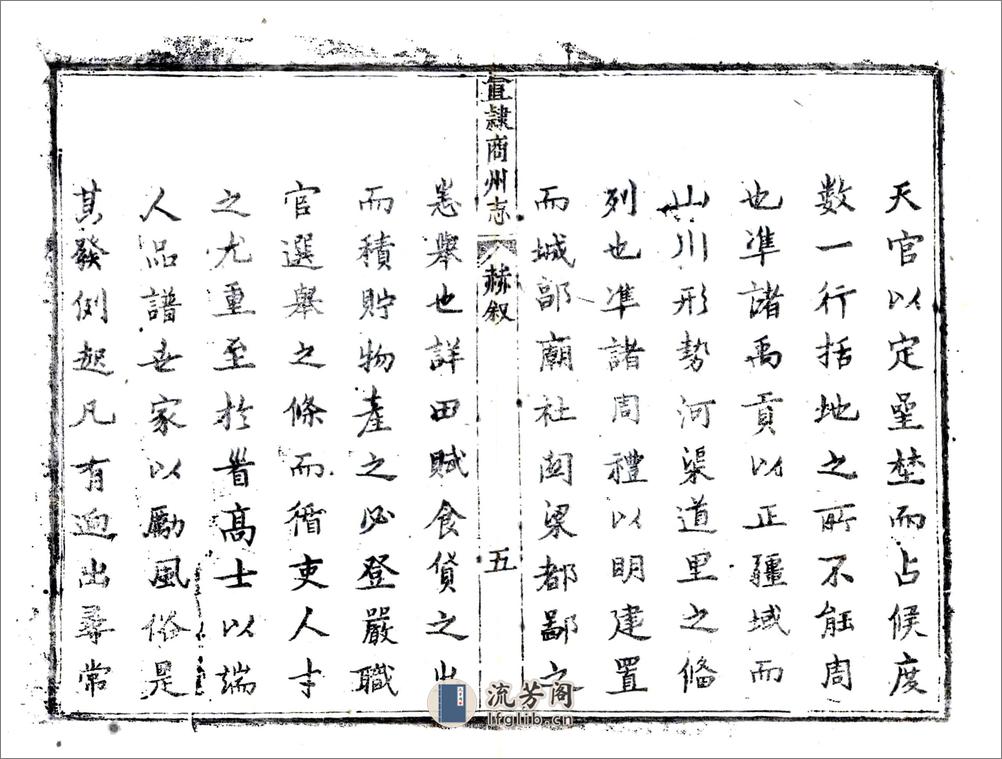 天官以定曐埜而占候度
数一行括地之所不能周
也凖諸禹貢以正疆域而
山川形勢河渠道里之俻
列也凖諸周禮以明建置
而城郭廟社関梁都鄙之
直隷商州志 赫叙 五
悉舉也詳田賦食貨之出
而積貯物產之必登嚴職
官選舉之條而循吏人才
之尤重至於高士以端
人品譜世家以勵風俗是
其發例起凡有迥出尋常
流芳阁
lfglib.cn